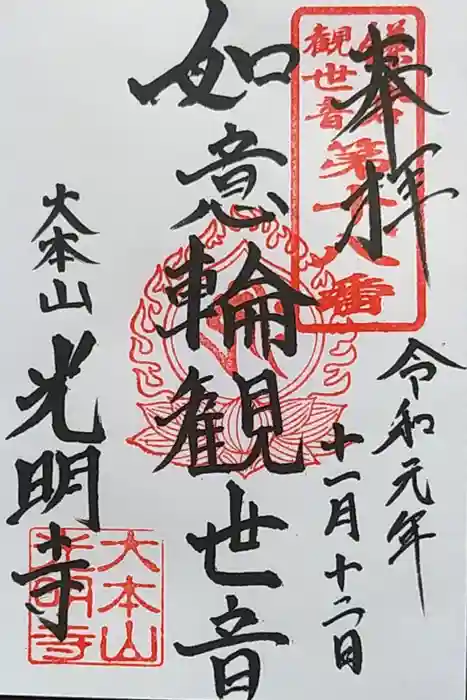 奉拝
令和元年
十一月十二日
鎌倉
観世音
第十八番
如意輪観世音
大本山
光明寺
大本山
光明寺